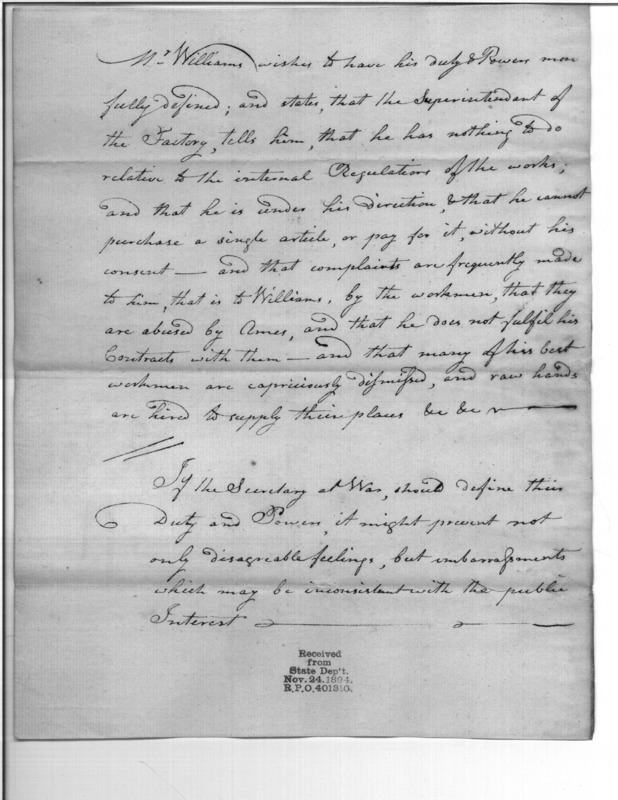 Mr Williams wishes to have his duty & Powers more
fully defined; and states, that the Superintendant of
the Factory, tells him, that he has nothing to do
relative to the internal Regulations of the works;
and that he is under his direction, & that he cannot
purchase a single article, or pay for it, without his
consent — and that complaints are frequently made
to him, that is to Williams, by the workmen, that they
are abused by Ames, and that he does not fulfil his
Contracts with them — and that many of his best
workmen are capriciously dismissed, and raw hands
are hired to supply their places &c &c
If the Secretary at War, should define their
Duty and Powers, it might prevent not
only disagreable feelings, but embarrassments
which may be inconsistant with the public
Interest
Received
from
State Dep't.
Nov. 24. 1894.
R.P.O. 401310.